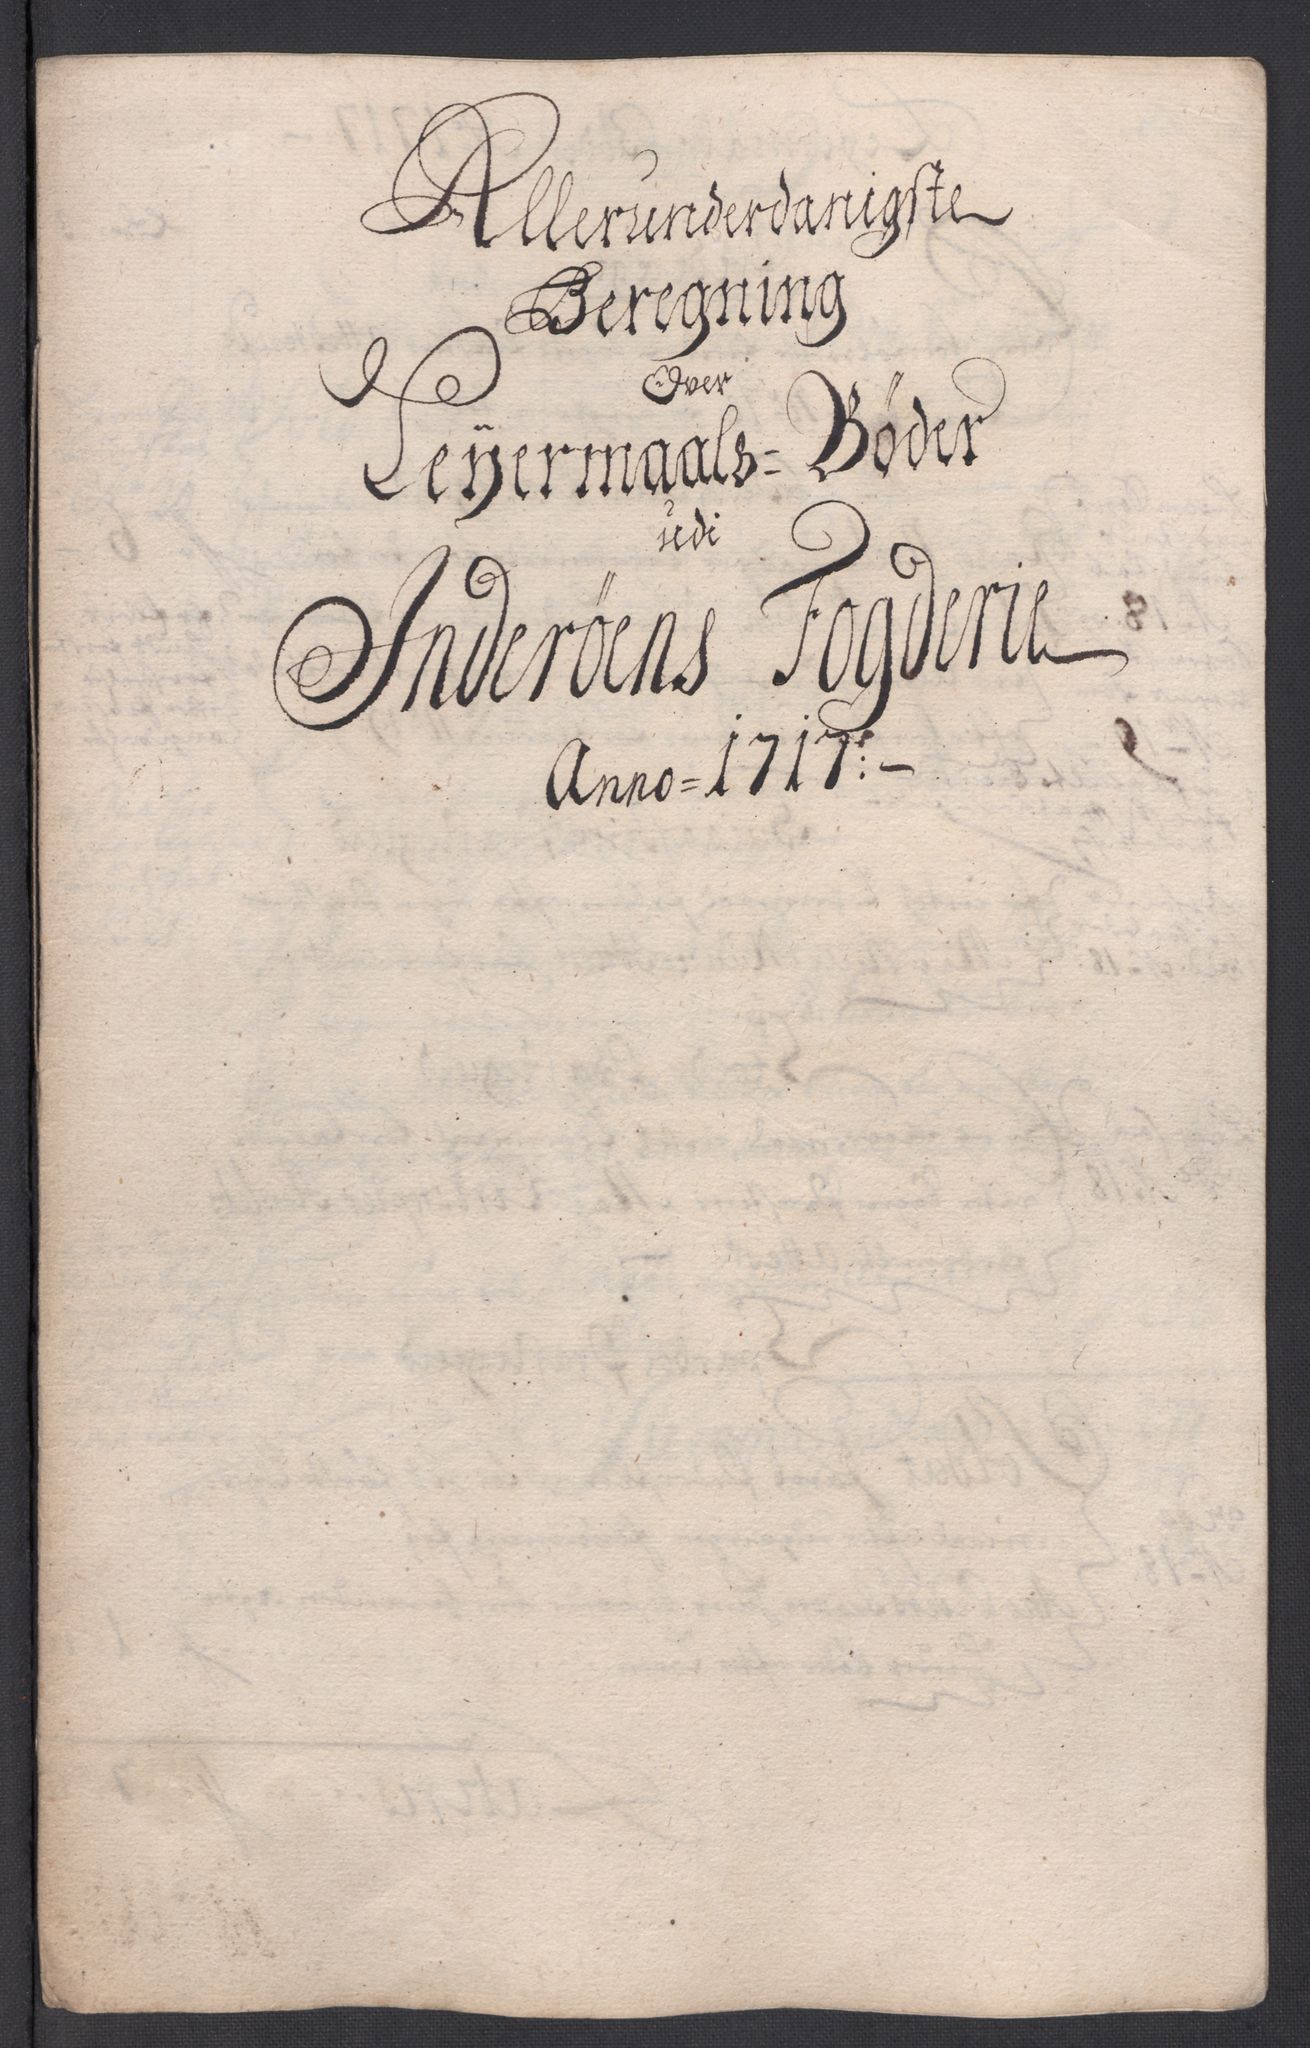 Allerunderdanigste
Beregning
Over
Leÿermaals= Bøder
udi
Inderöens Fogderie
Anno=1717:-